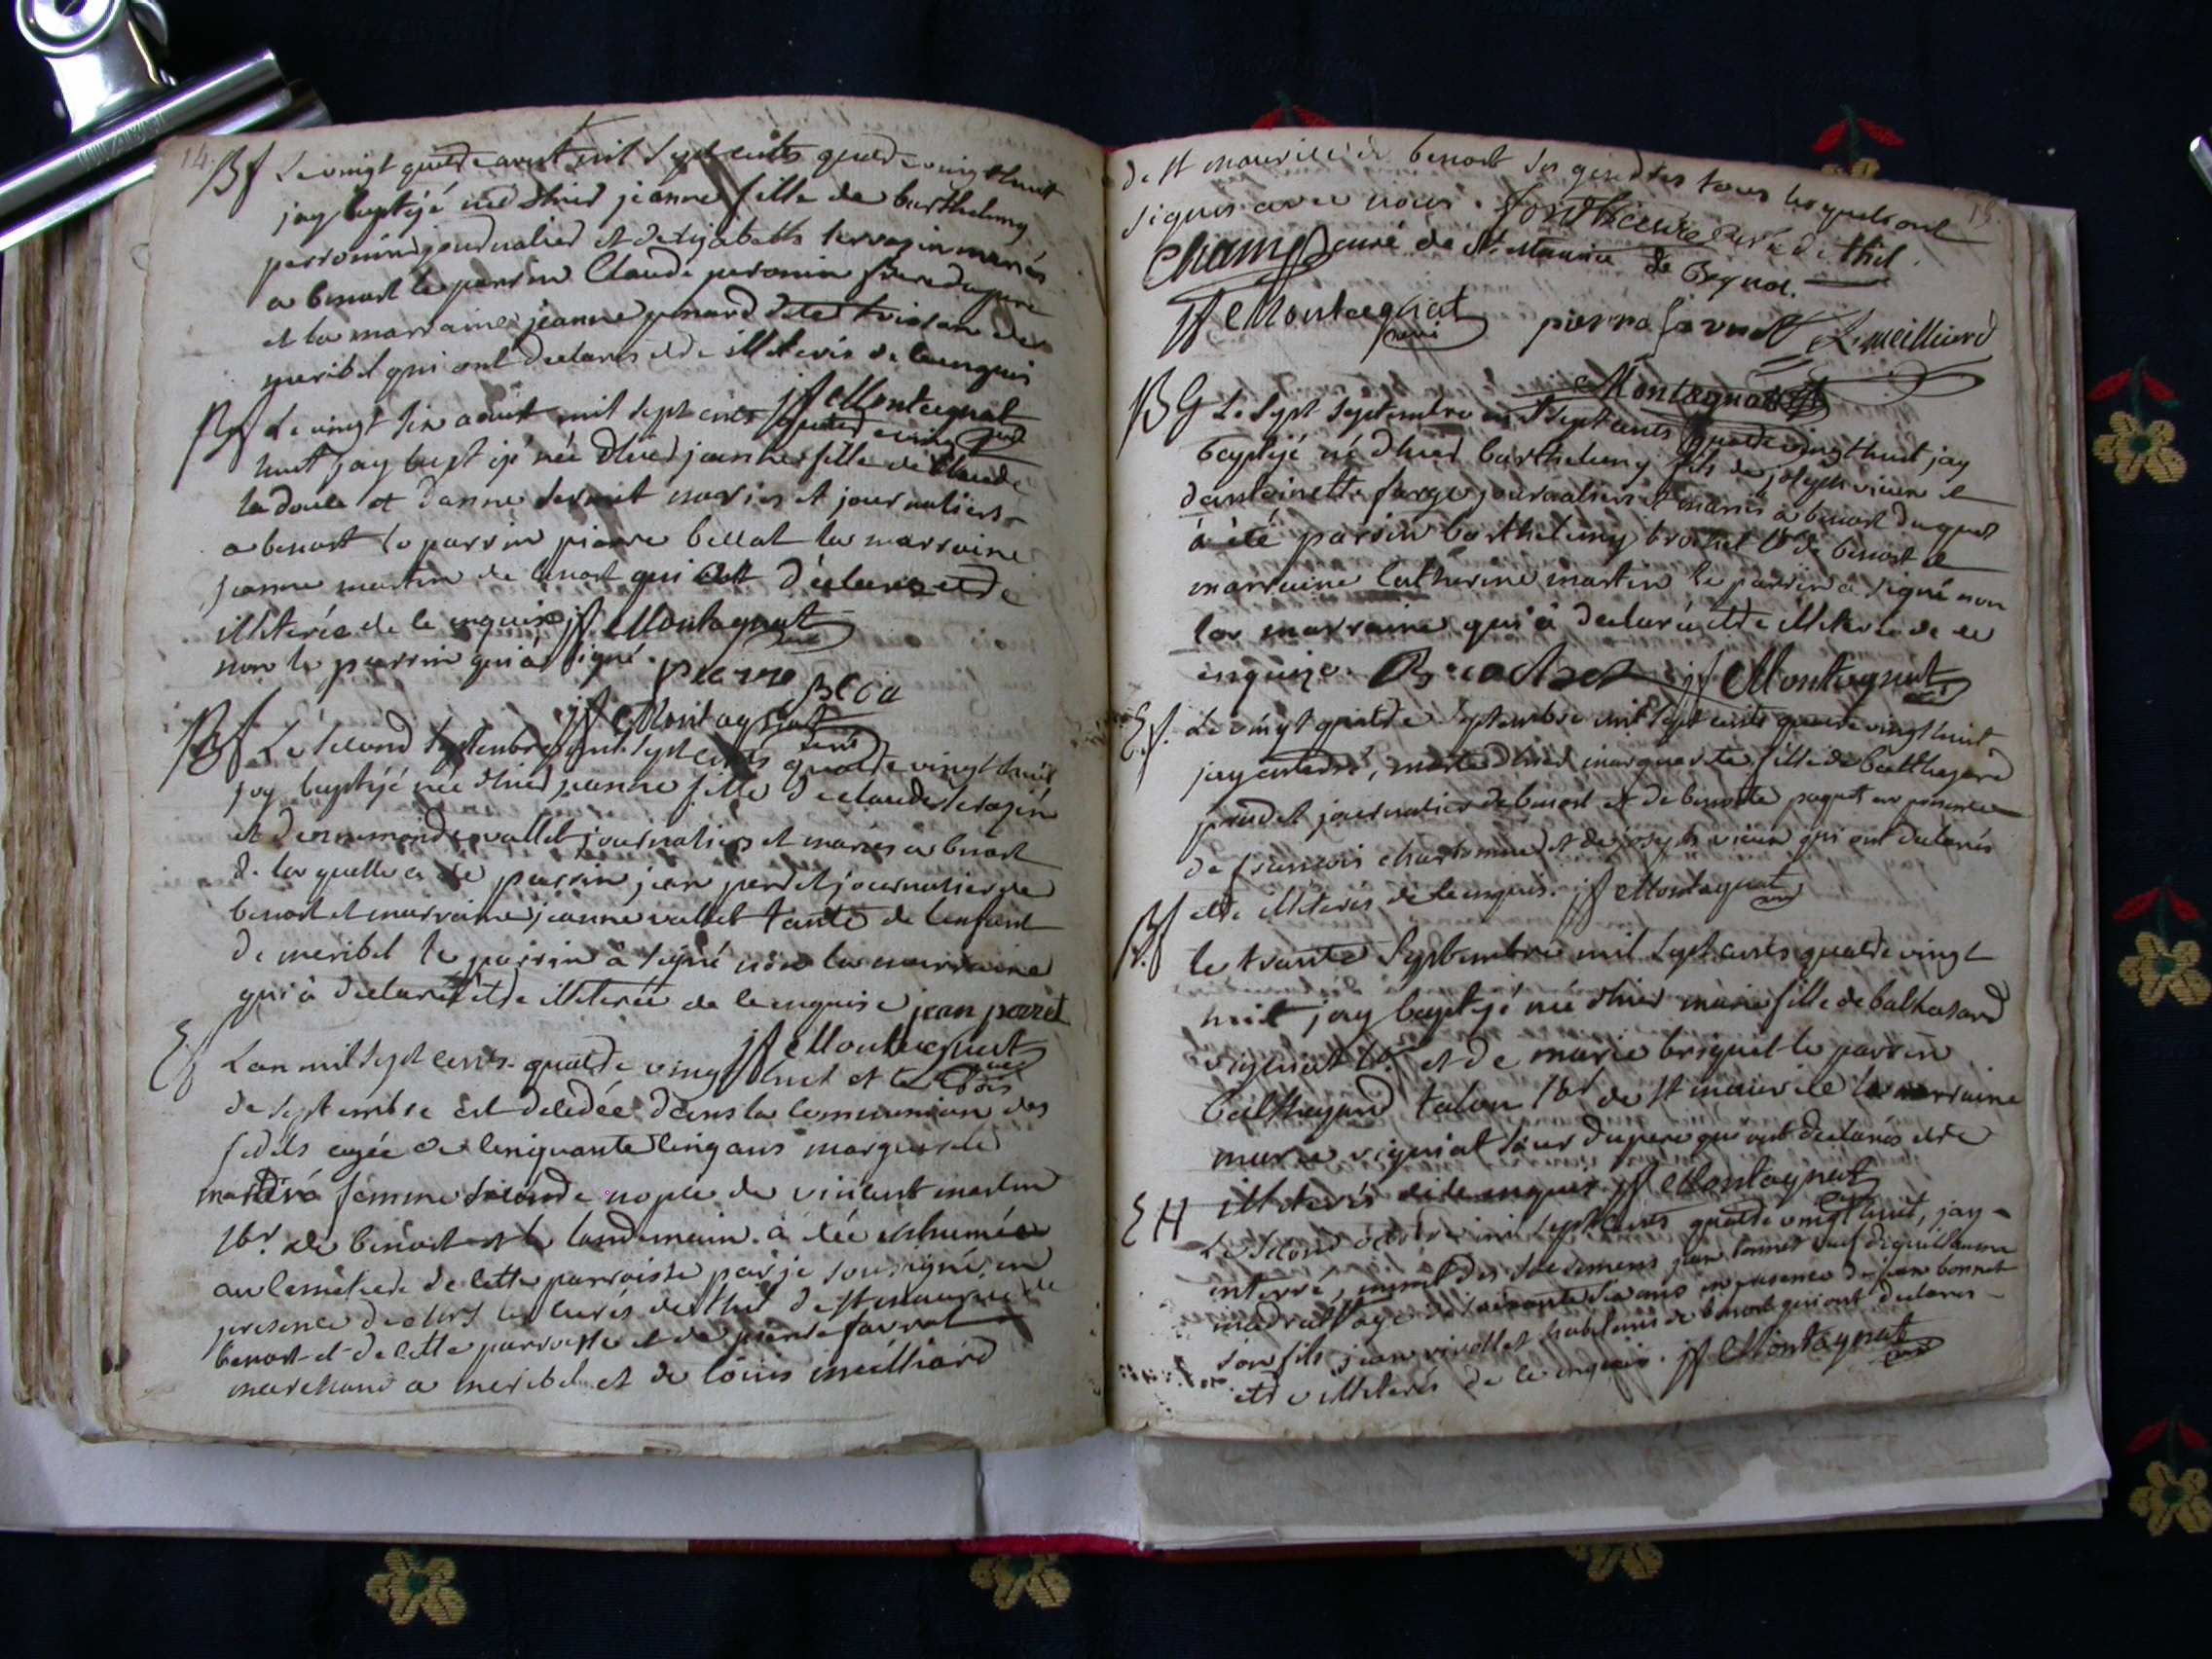 14.
Bf Le vingt quatre aout mil sept cents quatre vingt huit
jay baptisé née d'hier jeanne fille de barthelemy
perronin journalier et d'elizabeth terrasin mariés
a benost le parrin Claude peronin frere du pere
et la marraine jeanne
meribel qui ont declarés etre illiterés de ce enquis
jf Montagnat
curé
Bf Le vingt six aout mil sept cents quatre vingt
huit jay baptisé née d'hier jeanne fille de Claude
ladoule et d'anne mariés et journaliers
a benost le parrin pierre bellat la marraine
jeanne martin de benost qui ont déclaré etre
illiterée de ce enquise jf Montagnat
non le parrin qui à signé. pierre
jf Montagnat
curé
Bf Le second septembre mil sept cents quatre vingt huit
jay baptisé née d'hier jeanne fille de claude terrasin
et d'enemonde vallet journaliers et mariés a benost
de laquelle a été parrin jean perret journalier de
benost et marraine jeanne vallet tante de l'enfant
de meribel le parrin à signé non la marraine
qui à declaré etre illiterée de ce enquise jean perret
jf Montagnat
curé
Ef L'an mil sept cents quatre vingt huit et le trois
de septembre est decedée dans la communion des
fidels agée de cinquante cinq ans marguerite
femme seconde nople de vincent martin
lbr de benost et le landemain à été inhumée
au cemetiere de cette parroisse par je sousigné, en
presence de Mrs les curés de thil de st maurice de
benost et de cette parroisse et de pierre favrat
marchand a meribel et de louis meilliard
15.
de st maurice de benost ses gendres tous lesquels ont
signés avec nous. curé de thil.
Champ curé de St. Maurice de Beynot.
jf Montagnat
curé
pierre favrat L. meilliard
Montagnat
BG Le sept septembre mil sept cents quatre vingt huit jay
baptisé né d'hier barthelemy fils de joseph vieux et
d'antoinette farge journaliers et mariés a benost duquel
à été parrin barthelemy brochet lbr de benost et
marraine Catherine martin le parrin à signé non
la marraine qui à declaré etre illiterée de ce
enquize. Brochet jf Montagnat
curé
Ef. Le vingt quatre septembre mil sept cents quatre vingt huit
jay enterré, morte d'hier marguerite fille de balthazard
perret journalier de benost et de benoite paquet en presence
de francois charbonnier et de joseph vieux qui ont declarés
etre illiterés de ce enquis. jf Montagnat
curé
Bf le trante septembre mil sept cents quatre vingt
huit jay baptisé née d'hier marie fille de balthasard
vigniat lbr et de marie briquet le parrin
balthazard talon lbr de st maurice la marraine
marie vigniat sœur du pere qui ont declarés etre
illiterés de ce enquis jf Montagnat
curé
EH Le second octobre mil sept cents quatre vingt huit, jay
enterré, muni des sacremens jean bonnet veuf de guillaume
agé de soixante six ans en presence de jean bonnet
son fils jean vivollet habitans de benost qui ont declarés
etre illiterés de ce enquis. jf Montagnat
curé